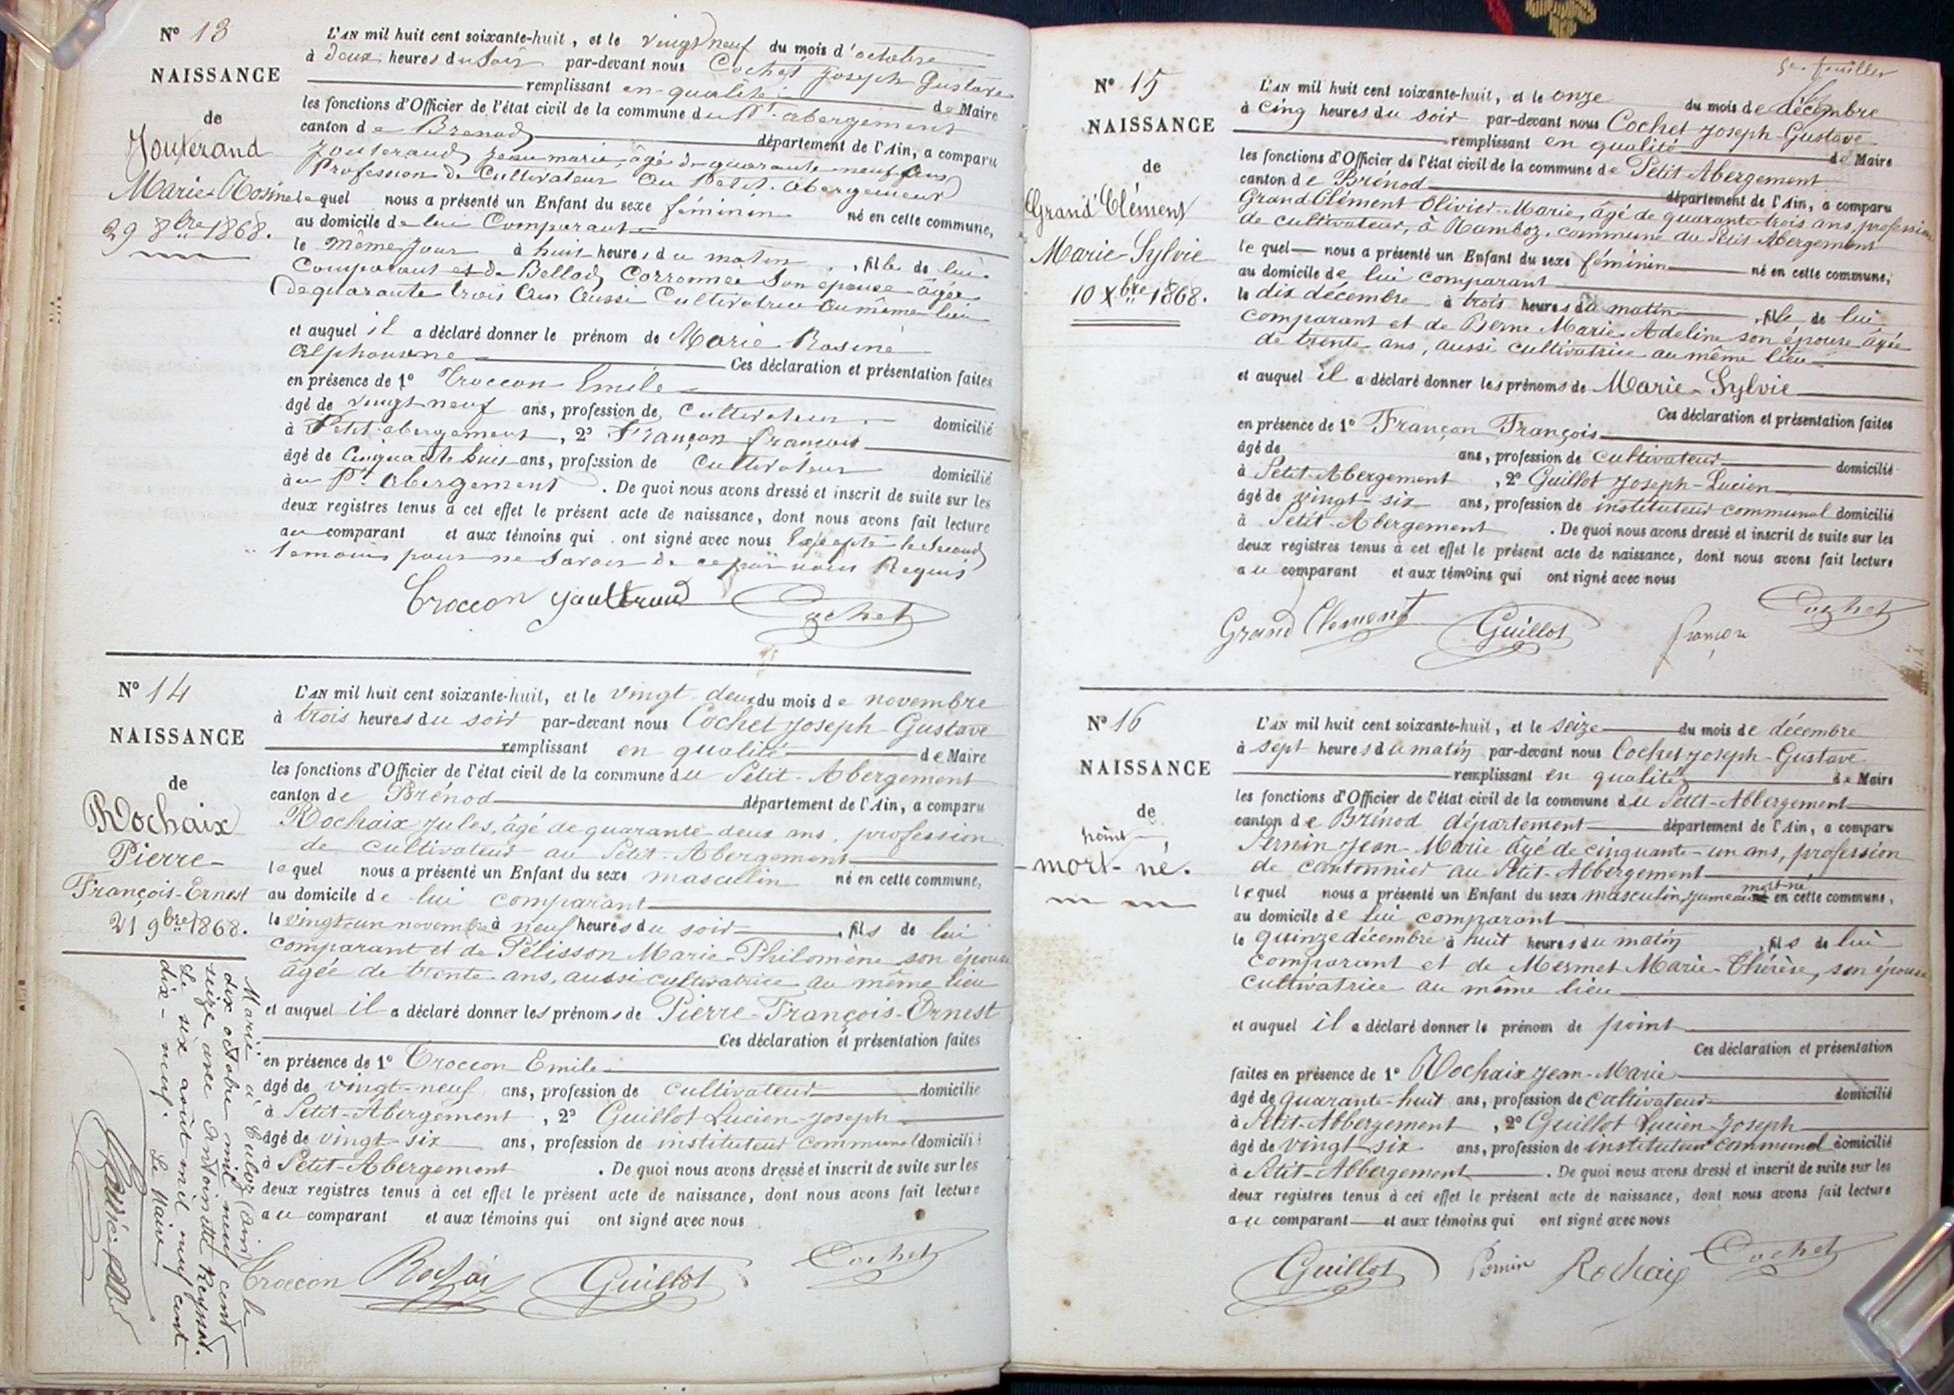 N° 13
NAISSANCE
de
Jouterand
Marie-Rosine
29 8bre 1868.
L'AN mil huit cent soixante-huit, et le vingt neuf du mois d'octobre
à deux heures du soir par-devant nous Cochet Joseph Gustave
remplissant en qualité de Maire
les fonctions d'Officier de l'état civil de la commune du Pt. abergement
canton de Brenod département de l'Ain, a comparu
Jouteraud Jean marie âgé de quarante neuf ans
Profession de Cultivateur au Petit. abergement
le quel nous a présenté un Enfant du sexe féminin né en cette commune,
au domicile de lui Comparant
le même jour à huit heures du matin, fille de lui
Comparant et de Bellod Son epouse âgée
de quarante trois ans aussi Cultivatrice au même lieu
et auquel il a déclaré donner le prénom de Marie Rosine
alphonsine Ces déclaration et présentation faites
en présence de 1° Troccon Emile
âgé de vingt neuf ans, profession de Cultivateur domicilié
à Petit abergement, 2° Françon françois
âgé de Cinquante huit ans, profession de Cultivateur domicilié
à au Pt. abergement. De quoi nous avons dressé et inscrit de suite sur les
deux registres tenus à cet effet le présent acte de naissance, dont nous avons fait lecture
au comparant et aux témoins qui ont signé avec nous Excepté le Second
Temoin pour ne Savoir de ce par nous Requis
Troccon Jouteraud Cochet
N° 14
NAISSANCE
de
Rochaix
Pierre-
François-Ernest
21 9bre 1868.
L'AN mil huit cent soixante-huit, et le vingt deux du mois de novembre
à trois heures du soir par-devant nous Cochet Joseph Gustave
remplissant en qualité de Maire
les fonctions d'Officier de l'état civil de la commune du Petit-Abergement
canton de Brénod département de l'Ain, a comparu
Rochaix Jules, âgé de quarante deux ans, profession
de cultivateur au Petit-Abergement
le quel nous a présenté un Enfant du sexe masculin né en cette commune,
au domicile de lui comparant
le vingt-un novembre à neuf heures du soir, fils de lui
comparant et de Pélisson Marie-Philomène son épouse
âgée de trente ans, aussi cultivatrice au même lieu
et auquel il a déclaré donner les prénoms de Pierre-François-Ernest
Ces déclaration et présentation faites
en présence de 1° Troccon Emile
âgé de vingt-neuf ans, profession de cultivateur domicilié
à Petit-Abergement, 2° Guillot Lucien-Joseph
âgé de vingt-six ans, profession de instituteur communal domicilié
à Petit-Abergement. De quoi nous avons dressé et inscrit de suite sur les
deux registres tenus à cet effet le présent acte de naissance, dont nous avons fait lecture
au comparant et aux témoins qui ont signé avec nous
Troccon Rochaix Guillot Cochet
Marié à Culoz (Ain) le
dix octobre mil neuf cent
seize avec Antoinette Reyssat.
Le six août mil neuf cent
dix-neuf. Le Maire
5e. feuillet
N° 15
NAISSANCE
de
Grand'Clément
Marie-Sylvie
10 Xbre 1868.
L'AN mil huit cent soixante-huit, et le onze du mois de décembre
à cinq heures du soir par-devant nous Cochet Joseph-Gustave
remplissant en qualité de Maire
les fonctions d'Officier de l'état civil de la commune de Petit-Abergement
canton de Brénod département de l'Ain, a comparu
Grand'Clément Olivier-Marie, âgé de quarante-trois ans, profession
de cultivateur, à Ramboz, commune du Petit Abergement
le quel nous a présenté un Enfant du sexe féminin né en cette commune,
au domicile de lui comparant
le dix décembre à trois heures du matin, fille de lui
comparant et de Berne Marie-Adeline son épouse âgée
de trente ans, aussi cultivatrice au même lieu
et auquel il a déclaré donner les prénoms de Marie-Sylvie
Ces déclaration et présentation faites
en présence de 1° Françon François
âgé de ans, profession de cultivateur domicilié
à Petit-Abergement, 2° Guillot Joseph-Lucien
âgé de vingt-six ans, profession de instituteur communal domicilié
à Petit-Abergement. De quoi nous avons dressé et inscrit de suite sur les
deux registres tenus à cet effet le présent acte de naissance, dont nous avons fait lecture
au comparant et aux témoins qui ont signé avec nous
Grand Clement Guillot françon Cochet
N° 16
NAISSANCE
de
point
mort-né.
L'AN mil huit cent soixante-huit, et le seize du mois de décembre
à sept heures du matin par-devant nous Cochet Joseph-Gustave
remplissant en qualité de Maire
les fonctions d'Officier de l'état civil de la commune du Petit-Abbergement
canton de Brénod département département de l'Ain, a comparu
Pernin Jean-Marie âgé de cinquante-un ans, profession
de cantonnier au Petit-Abbergement
le quel nous a présenté un Enfant du sexe masculin, jumeau mort-né en cette commune,
au domicile de lui comparant
le quinze décembre à huit heures du matin, fils de lui
comparant et de Mermet Marie-Thérèse, son épouse
cultivatrice au même lieu
et auquel il a déclaré donner le prénom de point
Ces déclaration et présentation
faites en présence de 1° Rochaix Jean-Marie
âgé de quarante-huit ans, profession de cultivateur domicilié
à Petit-Abbergement, 2° Guillot Lucien-Joseph
âgé de vingt-six ans, profession de instituteur communal domicilié
à Petit-Abbergement. De quoi nous avons dressé et inscrit de suite sur les
deux registres tenus à cet effet le présent acte de naissance, dont nous avons fait lecture
au comparant et aux témoins qui ont signé avec nous
Guillot Pernin Rochaix Cochet